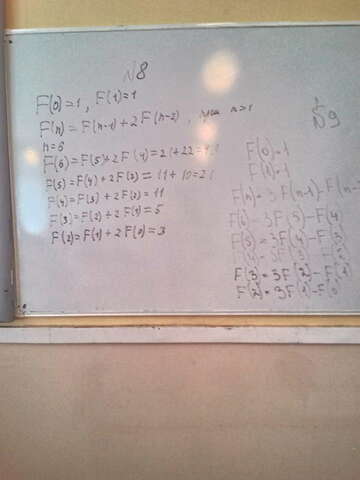 N8
F(0)=1, F(1)=1
F(n)=F(n-1)+2F(n-2), при n>1
n=6
F(6)=F(5)+2F(4)=21+22=43
F(5)=F(4)+2F(3)=11+10=21
F(4)=F(3)+2F(2)=11
F(3)=F(2)+2F(1)=5
F(2)=F(1)+2F(0)=3
N9
F(0)=1
F(1)=1
F(n)=3F(n-1)-F(n-
F(6)=3F(5)-F(4)
F(5)=3F(4)-F(3)
F(3)=3F(2)-F(1)
F(2)=3F(1)-F(0)